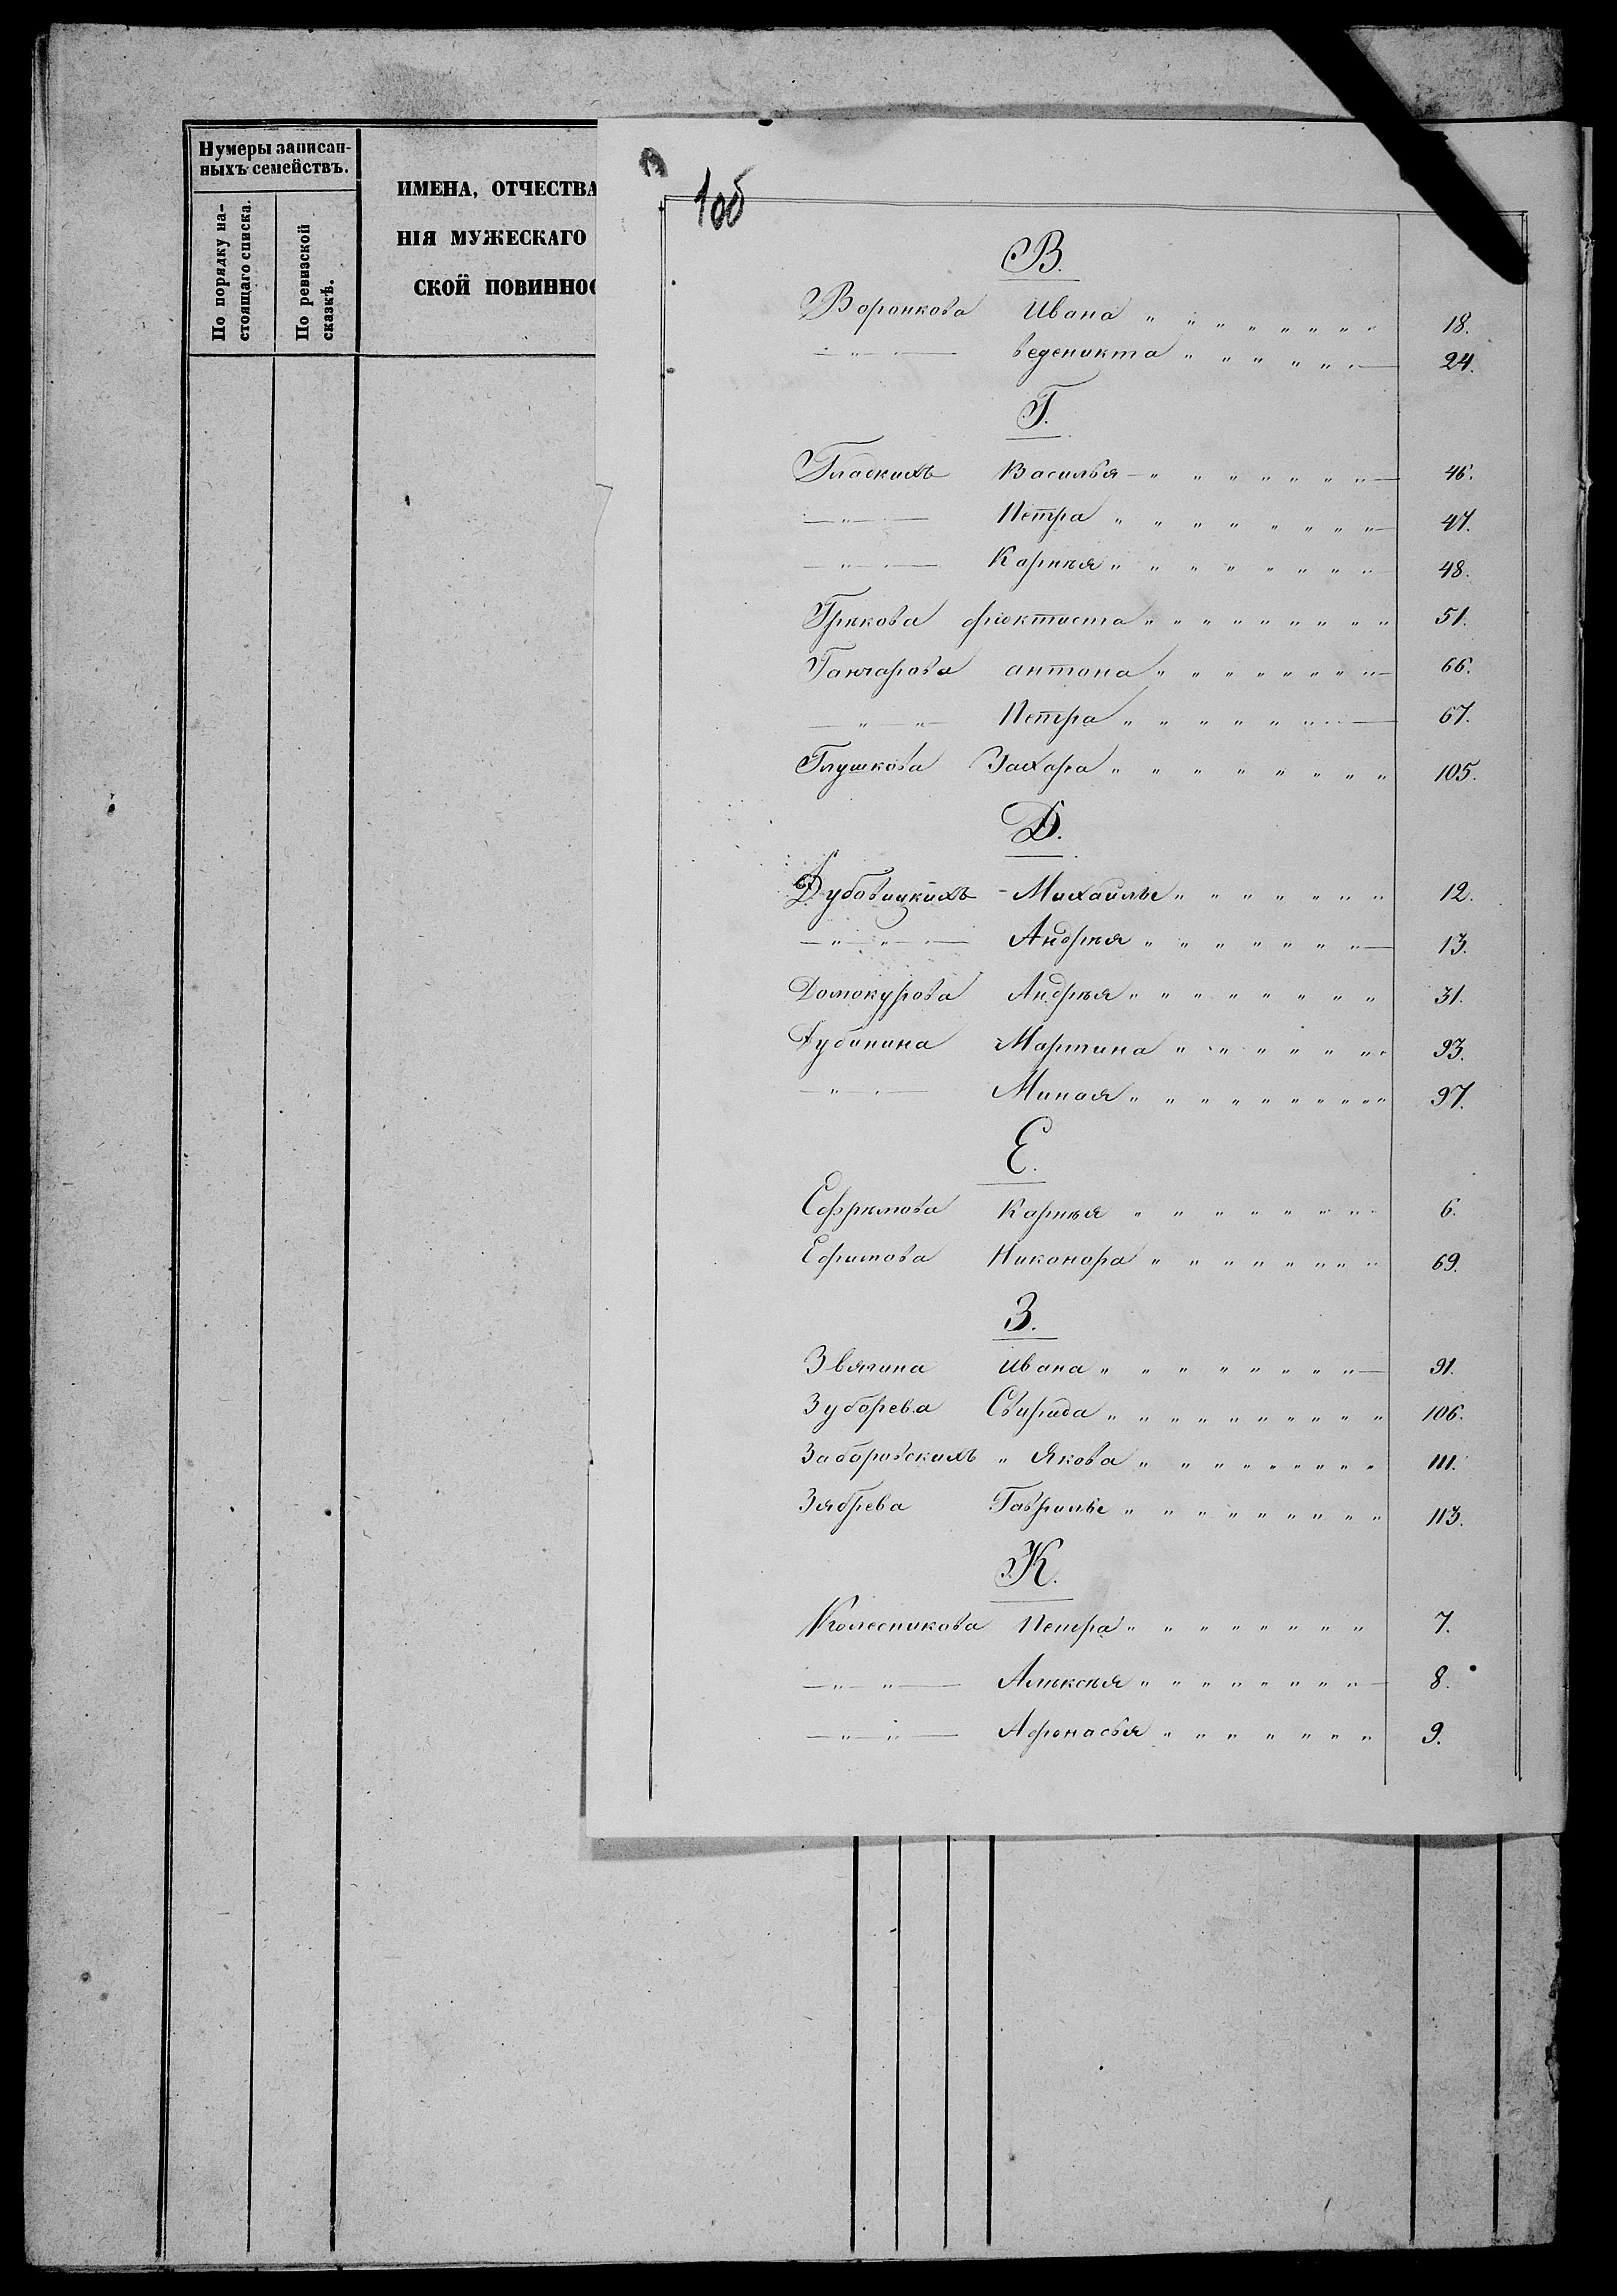 Нумеры записан-
ныхъ семействъ.
По порядку на-
стоящаго списка.
По ревизской
сказкѣ.
ИМЕНА, ОТЧЕСТВА
НІЯ МУЖЕСКАГО
СКОЙ ПОВИННОС
В.
Воронкова Ивана " " " " " " " " 18.
— " — веденикта " " " " " " — 24.
Г.
Гладкихъ Василья — " " " " " " " — 46.
— " — Петра " " " " " " " " — 47.
— " — Карнѣя " " " " " " " " 48.
Грѣкова Фіоктиста " " " " " " " " " 51.
Ганчарова антона " " " " " " " " — 66.
— " — " — Петра " " " " " " " — 67.
Глушкова Захара " " " " " " " " 105.
Д.
Дубовицкихъ — Михайлы " " " " " " " 12.
— " — " — Андрѣя " " " " " " " — 13.
Домокурова Андрѣя " " " " " " " " 31.
Дубинина Мартина " " " " " " " 93.
— " — Миная " " " " " " " " " 97.
Е.
Ефрѣмова Карнѣя " " " " " " " " 6.
Ефимова Никонора " " " " " " " " 69.
З.
Звягина Ивана " " " " " " " " — 91.
Зуборева Свирида " " " " " " " " " 106.
Заборовскихъ " Якова " " " " " " " " 111.
Зябрева Гаврилы " " " " " " " " " 113.
К.
Колесникова Петра " " " " " " " " 7.
— " — " — Алѣксѣя " " " " " " " " — 8.
— " — " — Афонасья " " " " " " " 9.